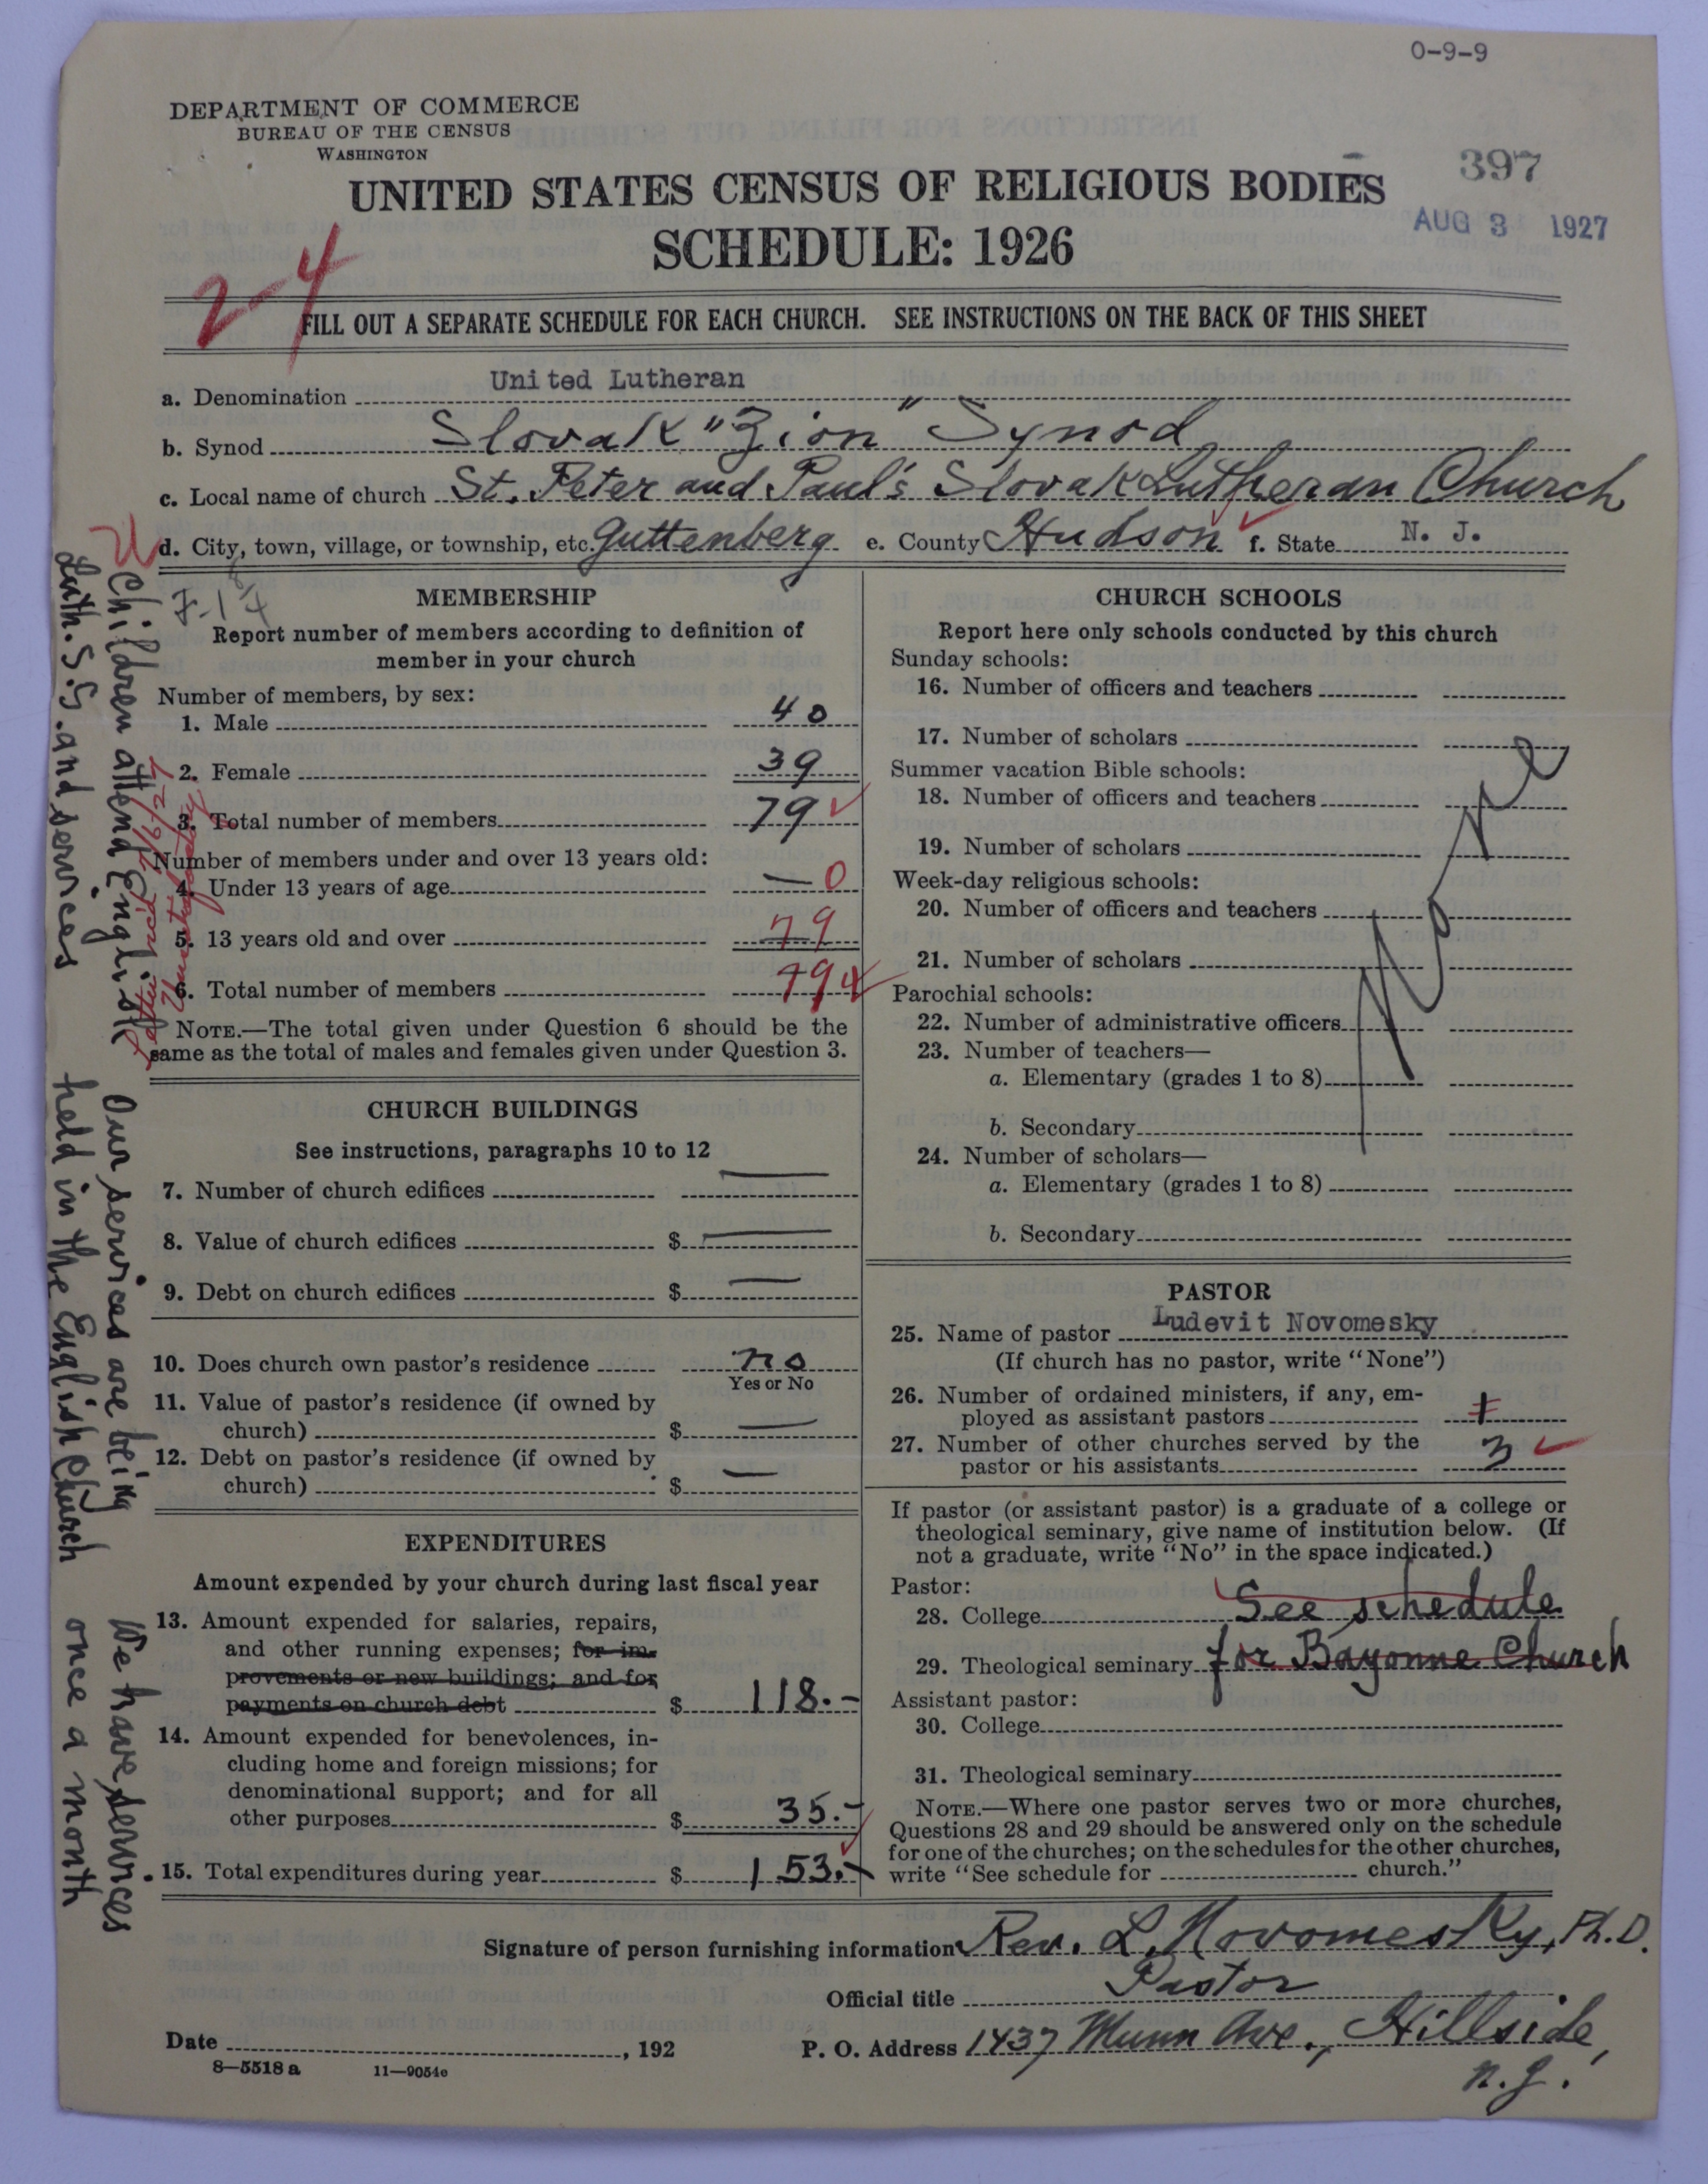 0-9-9
DEPARTMENT OF COMMERCE
BUREAU OF THE CENSUS
WASHINGTON
397
UNITED STATES CENSUS OF RELIGIOUS BODIES
AUG 3 1927
SCHEDULE: 1926
2-4
FILL OUT A SEPARATE SCHEDULE FOR EACH CHURCH. SEE INSTRUCTIONS ON THE BACK OF THIS SHEET
a. Denomination United Lutheran
b. Synod Slovak "Zion" Synod
c. Local name of church St. Peter and Paul's Slovak Lutheran Church
d. City, town, village, or township, etc. Guttenberg e. County Hudson f. State N. J.
MEMBERSHIP
Report number of members according to definition of
member in your church
Number of members, by sex:
1. Male 40
2. Female 39
3. Total number of members 79
Number of members under and over 13 years old:
4. Under 13 years of age — 0
5. 13 years old and over 79
6. Total number of members 79
NOTE.—The total given under Question 6 should be the
same as the total of males and females given under Question 3.
CHURCH BUILDINGS
See instructions, paragraphs 10 to 12
7. Number of church edifices —
8. Value of church edifices $ —
9. Debt on church edifices $ —
10. Does church own pastor's residence no
Yes or No
11. Value of pastor's residence (if owned by
church) $ —
12. Debt on pastor's residence (if owned by
church) $ —
EXPENDITURES
Amount expended by your church during last fiscal year
13. Amount expended for salaries, repairs,
and other running expenses; for im-
provements or new buildings; and for
payments on church debt $ 118.-
14. Amount expended for benevolences, in-
cluding home and foreign missions; for
denominational support; and for all
other purposes $ 35.-
15. Total expenditures during year $ 153.-
CHURCH SCHOOLS
Report here only schools conducted by this church
Sunday schools:
16. Number of officers and teachers
17. Number of scholars
Summer vacation Bible schools:
18. Number of officers and teachers
19. Number of scholars
Week-day religious schools:
20. Number of officers and teachers
21. Number of scholars
Parochial schools:
22. Number of administrative officers
23. Number of teachers—
a. Elementary (grades 1 to 8)
b. Secondary
24. Number of scholars—
a. Elementary (grades 1 to 8)
b. Secondary
None
PASTOR
25. Name of pastor Ludevit Novomesky
(If church has no pastor, write "None")
26. Number of ordained ministers, if any, em-
ployed as assistant pastors
27. Number of other churches served by the
pastor or his assistants 3
If pastor (or assistant pastor) is a graduate of a college or
theological seminary, give name of institution below. (If
not a graduate, write "No" in the space indicated.)
Pastor:
28. College See schedule
29. Theological seminary for Bayonne Church
Assistant pastor:
30. College
31. Theological seminary
NOTE.—Where one pastor serves two or more churches,
Questions 28 and 29 should be answered only on the schedule
for one of the churches; on the schedules for the other churches,
write "See schedule for church."
Signature of person furnishing information Rev. L. Novomesky, Ph.D.
Official title Pastor
Date , 192
P. O. Address 1437 Munn Ave., Hillside,
N. J.
8-5518 a 11-9054e
Children attend English
Luth. S.S. and services
Our services are being
held in the English Church
We have services
once a month